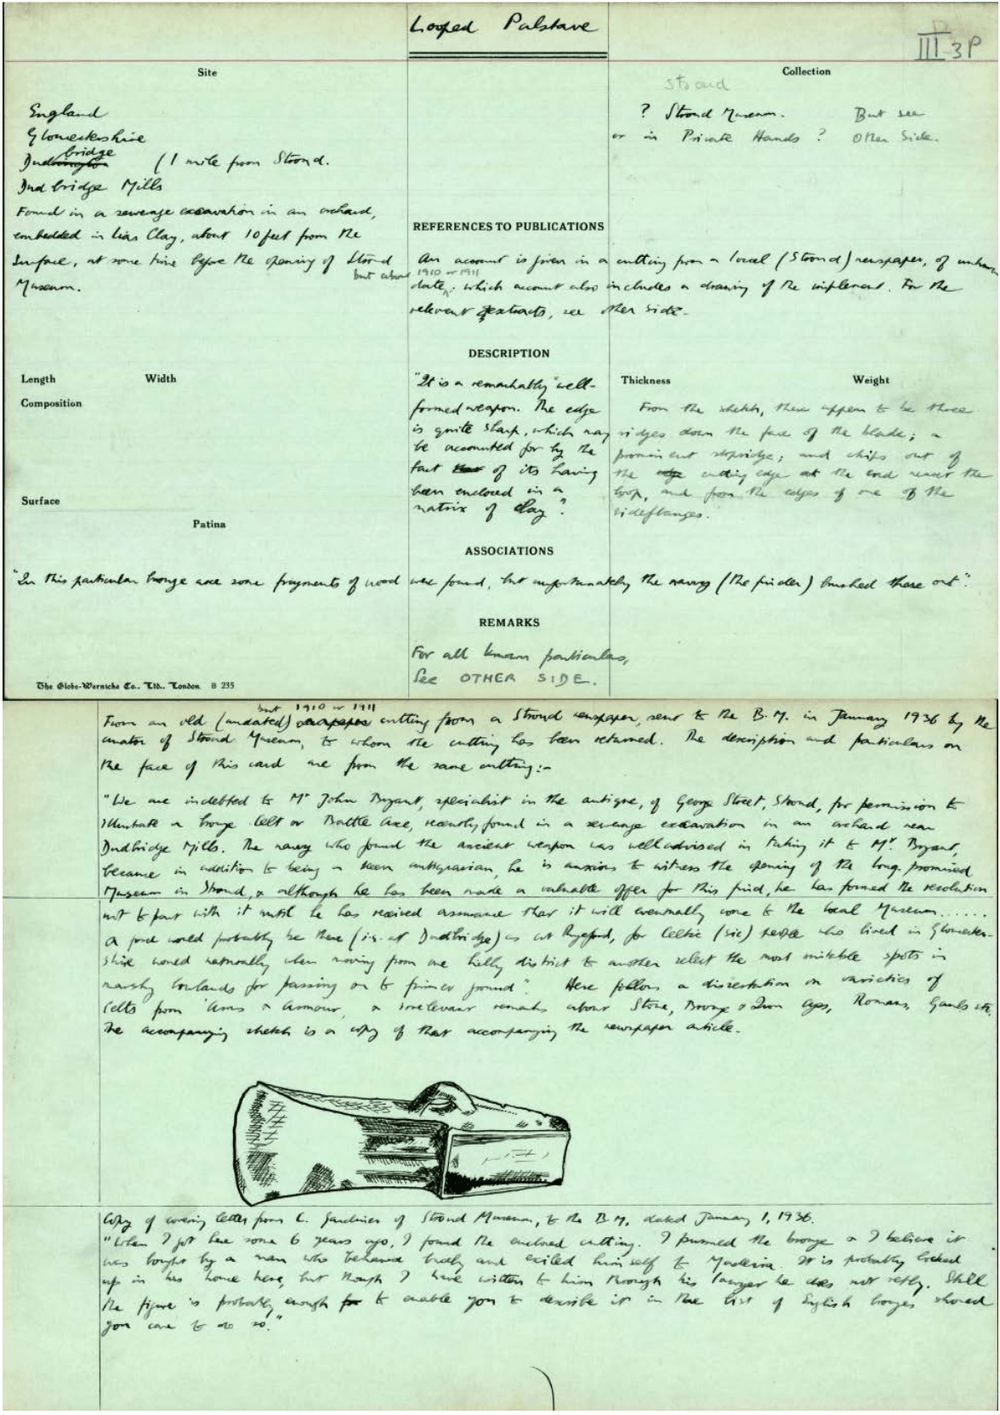 Looped Palstave
III 3P
Site
Collection
Stroud
England
? Stroud Museum. But see
Gloucestershire
or in Private Hands? Other Side.
Dudbridge (1 mile from Stroud.
Dudbridge Mills
Found in a sewerage excavation in an orchard,
embedded in Lias Clay, about 10 feet from the
surface, at some time before the opening of Stroud
Museum.
REFERENCES TO PUBLICATIONS
An account is given in a cutting from a local (Stroud) newspaper, of unknown
but about 1910 or 1911
date; which account also includes a drawing of the implement. For the
relevant extracts, see other side.
DESCRIPTION
Length Width
Thickness Weight
Composition
"It is a remarkably well-
formed weapon. The edge
is quite sharp, which may
be accounted for by the
fact of its having
been enclosed in a
matrix of clay".
From the sketch, there appear to be three
ridges down the face of the blade; a
prominent stopridge; and chips out of
the cutting edge at the end nearer the
loop, and from the edges of one of the
sideflanges.
Surface
Patina
ASSOCIATIONS
"In this particular bronze axe some fragments of wood were found, but unfortunately the navvy (the finder) brushed these out".
REMARKS
For all known particulars,
See OTHER SIDE.
The Globe-Wernicke Co., Ltd., London. B 235
but 1910 or 1911
From an old (undated) cutting from a Stroud newspaper, sent to the B.M. in January 1936 by the
curator of Stroud Museum, to whom the cutting has been returned. The description and particulars on
the face of this card are from the same cutting:-
"We are indebted to Mr John Bryant, specialist in the antique, of George Street, Stroud, for permission to
illustrate a bronze Celt or Battle Axe, recently found in a sewerage excavation in an orchard near
Dudbridge Mills. The navvy who found the ancient weapon was well advised in taking it to Mr. Bryant,
because in addition to being a keen antiquarian, he is anxious to witness the opening of the long-promised
Museum in Stroud, & although he has been made a valuable offer for this find, he has formed the resolution
not to part with it until he has received assurance that it will eventually come to the local Museum......
A ford would probably be there (i.e. at Dudbridge) as at Ryeford, for Celtic (sic) people who lived in Gloucester-
shire would naturally when moving from one hilly district to another select the most suitable spots in
marshy lowlands for passing on to firmer ground". Here follows a dissertation on varieties of
Celts from 'Arms & Armour', & irrelevant remarks about Stone, Bronze & Iron ages, Romans, Gauls etc.
The accompanying sketch is a copy of that accompanying the newspaper article.
Copy of covering letter from C. Gardiner of Stroud Museum, to the B.M. dated January 1, 1936.
"When I got here some 6 years ago, I found the enclosed cutting. I pursued the bronze & I believe it
was bought by a man who behaved badly and exiled himself to Madeira. It is probably locked
up in his house here, but though I have written to him through his lawyer he does not reply. Still
the figure is probably enough to enable you to describe it in the list of English bronzes should
you care to do so."